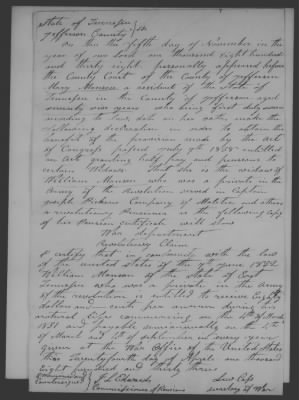 State of Tennessee
Jefferson County } ss
On this the fifth day of November in the
year of our Lord one thousand eight hundred
and thirty eight personally appeared before
the County Court of the County of Jefferson
Mary Manson a resident of the State of
Tennessee in the County of Jefferson aged
seventy one years who being first duly sworn
according to law, doth on her oath, make the
following declaration in order to obtain the
benefit of the provision made by the Act
of Congress passed July 7th 1838 entitled
an Act granting half pay and pensions to
certain Widows. That she is the widow of
William Manson who was a private in the
Army of the Revolution served in Captain
Joseph Pickens Company of Militia and others
a revolutionary Pensioner in the following copy
of his Pension certificate will show
War department
Revolutionary Claim
I certify that in conformity with the law
of the united States of the 7th June 1832
William Manson of the State of East
Tennessee who was a private in the Army
of the revolution is entitled to receive Eighty
dollars and cents per annum during his
natural life commencing on the 4th of March
1831 and payable semiannually on the 4th
of March and 4th of September in every year
given at the War Office of the United States
this Twenty fourth day of April one thousand
Eight hundred and thirty three
J. L. Edwards
Commissioner of Pensions
Lew Cass
Secretary of War